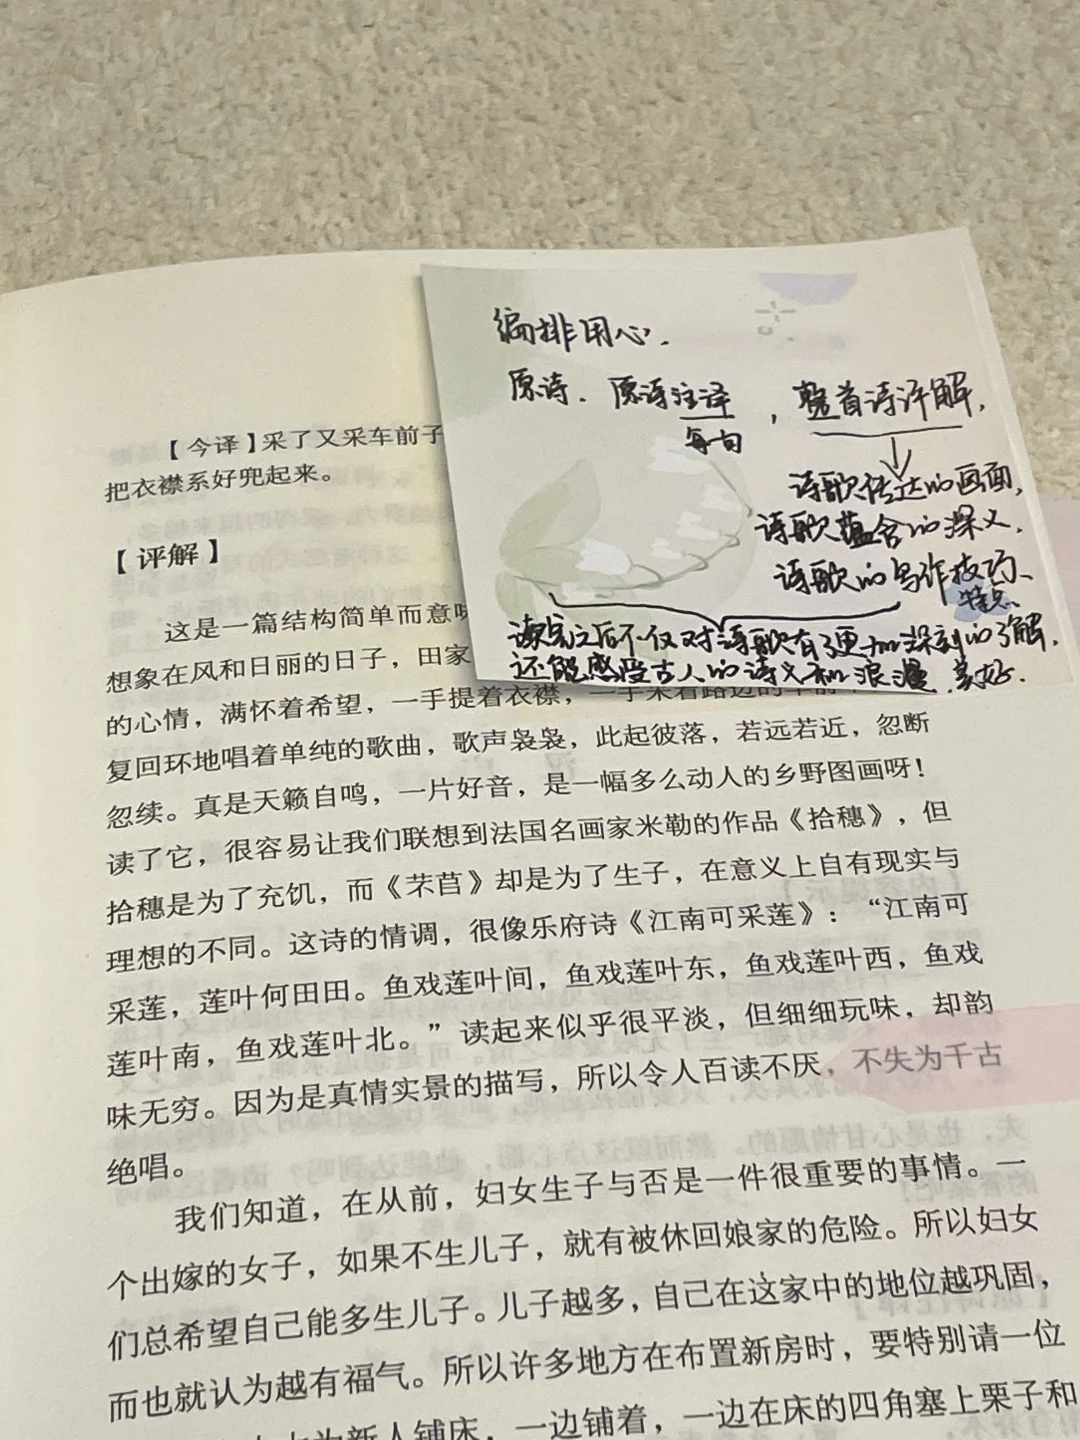 编排用心.
原诗. 原诗注译, 整首诗评解,
每句
诗歌传达的画面,
诗歌蕴含的深义.
诗歌的写作技巧、
特点、
读完之后不仅对诗歌有了更加深刻的了解,
还能感受古人的诗义和浪漫 美好.
【今译】采了又采车前子
把衣襟系好兜起来。
【评解】
这是一篇结构简单而意味
想象在风和日丽的日子，田家
的心情，满怀着希望，一手提着衣襟，一手采着路边的车前
复回环地唱着单纯的歌曲，歌声袅袅，此起彼落，若远若近，忽断
忽续。真是天籁自鸣，一片好音，是一幅多么动人的乡野图画呀！
读了它，很容易让我们联想到法国名画家米勒的作品《拾穗》，但
拾穗是为了充饥，而《芣苢》却是为了生子，在意义上自有现实与
理想的不同。这诗的情调，很像乐府诗《江南可采莲》：“江南可
采莲，莲叶何田田。鱼戏莲叶间，鱼戏莲叶东，鱼戏莲叶西，鱼戏
莲叶南，鱼戏莲叶北。”读起来似乎很平淡，但细细玩味，却韵
味无穷。因为是真情实景的描写，所以令人百读不厌，不失为千古
绝唱。
我们知道，在从前，妇女生子与否是一件很重要的事情。一
个出嫁的女子，如果不生儿子，就有被休回娘家的危险。所以妇女
们总希望自己能多生儿子。儿子越多，自己在这家中的地位越巩固，
而也就认为越有福气。所以许多地方在布置新房时，要特别请一位
为新人铺床，一边铺着，一边在床的四角塞上栗子和